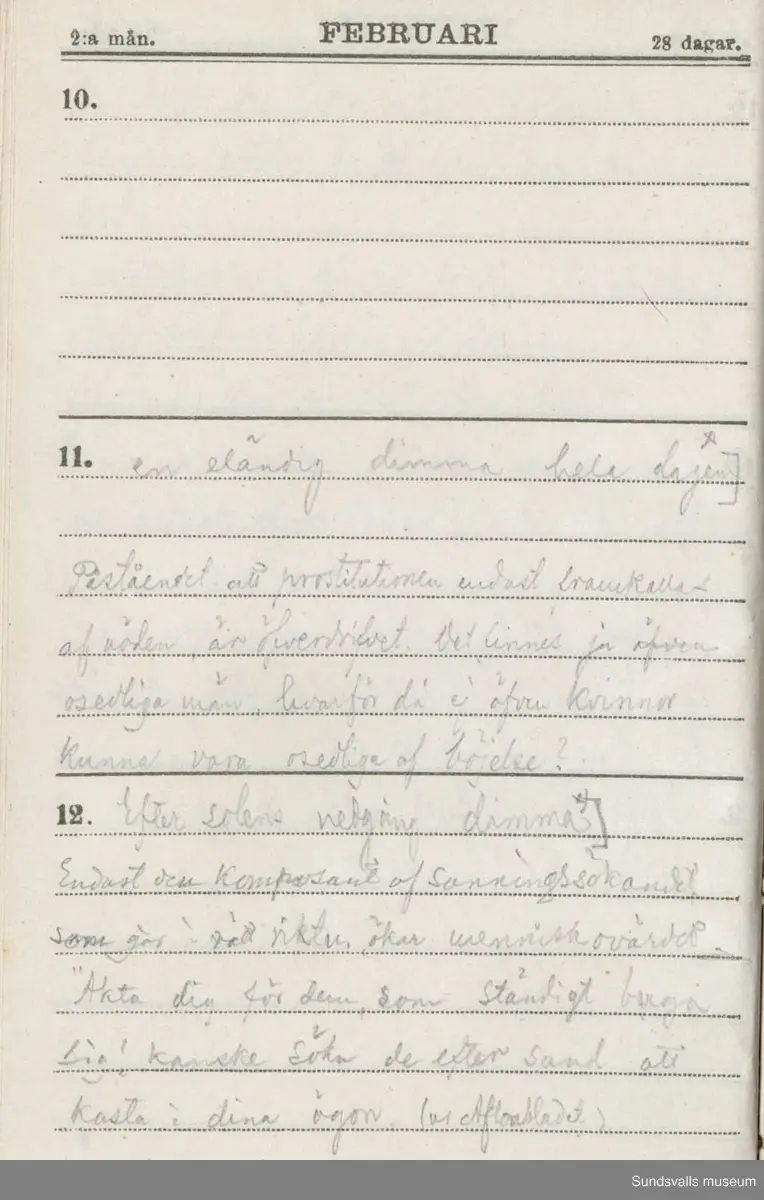 2:a mån. FEBRUARI 28 dagar.
10.
11. en eländig dimma hela dagen]
Påståendet att prostitutionen endast framkallas
af nöden, är öfverdrifvet. Det finnes ju äfven
osedliga män, hvarför då ej äfven kvinnor
kunna vara osedliga af böjelse?
12. Efter solens nedgång dimma]
Endast den komposant af sanningssökandet,
som går i rätt riktn. ökar menniskovärdet.
"Akta dig för dem, som ständigt buga
sig! kanske söka de efter sand att
kasta i dina ögon. (ur Aftonbladet)
Sundsvalls museum